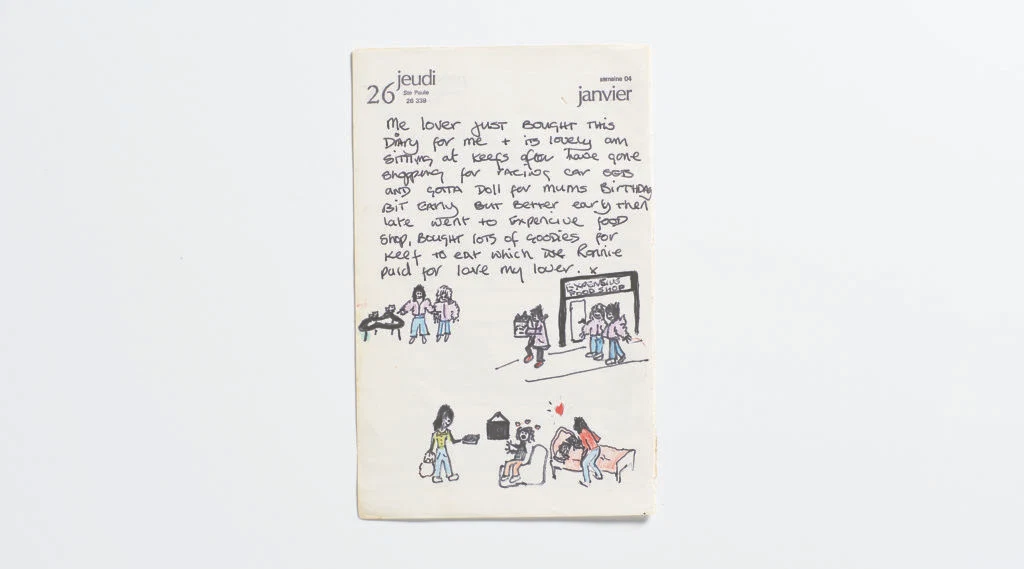 26 jeudi
Ste Paule
26 339
semaine 04
janvier
Me lover JUST BOUGHT THIS
DIARY for me + its lovely am
sitting at Keefs after have gone
shopping for racing car sets
AND GOTTA Doll for mums BIRTHDAY
BIT EARLY BUT BETTER early then
late went to EXPENCIVE FOOD
SHOP, BOUGHT LOTS of GOODIES for
Keef TO EAT which Ronnie
paid for love my lover. x
EXPENSIVE
FOOD SHOP